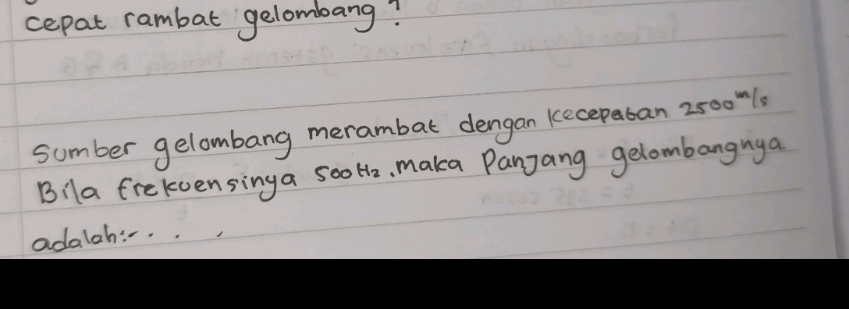 cepat rambat gelombang?
Sumber gelombang merambat dengan kecepatan 2500 m/s
Bila frekuensinya 500 Hz, maka Panjang gelombangnya
adalah:. . . .